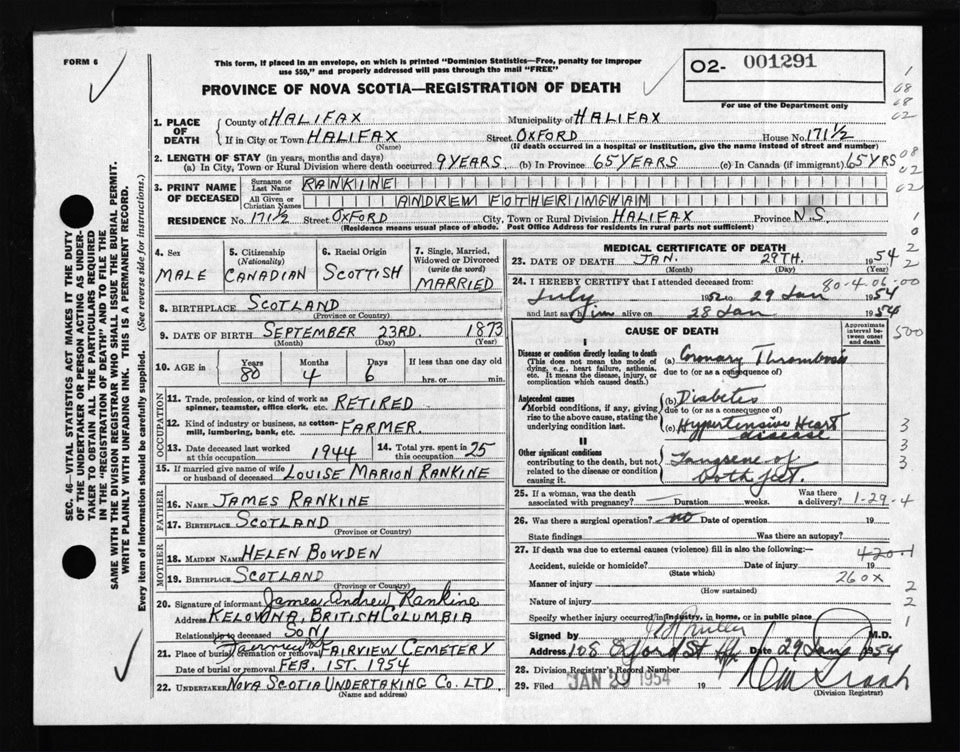 FORM 6
This form, if placed in an envelope, on which is printed "Dominion Statistics—Free, penalty for improper
use $50," and properly addressed will pass through the mail "FREE"
O2- 001291
For use of the Department only
PROVINCE OF NOVA SCOTIA—REGISTRATION OF DEATH
1. PLACE OF DEATH
County of HALIFAX Municipality of HALIFAX
If in City or Town HALIFAX Street OXFORD House No. 171½
(Name) (If death occurred in a hospital or institution, give the name instead of street and number)
2. LENGTH OF STAY (in years, months and days)
(a) In City, Town or Rural Division where death occurred 9 YEARS (b) In Province 65 YEARS (c) In Canada (if immigrant) 65 YRS
3. PRINT NAME OF DECEASED
Surname or Last Name RANKINE
All Given or Christian Names ANDREW FOTHERINGHAM
RESIDENCE No. 171½ Street OXFORD City, Town or Rural Division HALIFAX Province N.S.
(Residence means usual place of abode. Post Office Address for residents in rural parts not sufficient)
4. Sex MALE
5. Citizenship (Nationality) CANADIAN
6. Racial Origin SCOTTISH
7. Single, Married, Widowed or Divorced (write the word) MARRIED
8. BIRTHPLACE SCOTLAND
(Province or Country)
9. DATE OF BIRTH SEPTEMBER 23RD. 1873
(Month) (Day) (Year)
10. AGE in Years 80 Months 4 Days 6 If less than one day old hrs. or min.
OCCUPATION
11. Trade, profession, or kind of work as spinner, teamster, office clerk, etc. RETIRED
12. Kind of industry or business, as cotton-mill, lumbering, bank, etc. FARMER.
13. Date deceased last worked at this occupation 1944
14. Total yrs. spent in this occupation 25
15. If married give name of wife or husband of deceased LOUISE MARION RANKINE
FATHER
16. NAME JAMES RANKINE
17. BIRTHPLACE SCOTLAND
(Province or Country)
MOTHER
18. MAIDEN NAME HELEN BOWDEN
19. BIRTHPLACE SCOTLAND
(Province or Country)
20. Signature of informant James Andrew Rankine
Address KELOWNA, BRITISH COLUMBIA
Relationship to deceased SON
21. Place of burial, cremation or removal FAIRVIEW CEMETERY
Date of burial or removal FEB. 1ST. 1954
22. UNDERTAKER NOVA SCOTIA UNDERTAKING CO. LTD.
(Name and address)
MEDICAL CERTIFICATE OF DEATH
23. DATE OF DEATH JAN. 29TH. 1954
(Month) (Day) (Year)
80-4-06-00
24. I HEREBY CERTIFY that I attended deceased from:
July 1952 to 29 Jan 1954
and last saw him alive on 28 Jan 1954
CAUSE OF DEATH
Approximate interval between onset and death
I
Disease or condition directly leading to death
(This does not mean the mode of dying, e.g., heart failure, asthenia, etc. It means the disease, injury, or complication which caused death.)
(a) Coronary Thrombosis
due to (or as a consequence of)
Antecedent causes
Morbid conditions, if any, giving rise to the above cause, stating the underlying condition last.
(b) Diabetes
due to (or as a consequence of)
(c) Hypertensive Heart disease
II
Other significant conditions
contributing to the death, but not related to the disease or condition causing it.
Gangrene of both feet.
25. If a woman, was the death associated with pregnancy? Duration weeks. Was there a delivery? 1-29-4
26. Was there a surgical operation? no Date of operation 19
State findings Was there an autopsy?
27. If death was due to external causes (violence) fill in also the following:—
420-1
Accident, suicide or homicide? Date of injury 19
(State which)
260X
Manner of injury
(How sustained)
Nature of injury
Specify whether injury occurred in industry, in home, or in public place
Signed by M.D.
Address 108 Oxford St Hfx Date 29 Jan 1954
28. Division Registrar's Record Number
29. Filed JAN 29 1954 19
(Division Registrar)
SEC. 46—VITAL STATISTICS ACT MAKES IT THE DUTY
OF THE UNDERTAKER OR PERSON ACTING AS UNDER-
TAKER TO OBTAIN ALL THE PARTICULARS REQUIRED
IN THE "REGISTRATION OF DEATH" AND TO FILE THE
SAME WITH THE DIVISION REGISTRAR WHO SHALL ISSUE THE BURIAL PERMIT.
WRITE PLAINLY WITH UNFADING INK. THIS IS A PERMANENT RECORD.
Every item of information should be carefully supplied. (See reverse side for instructions.)